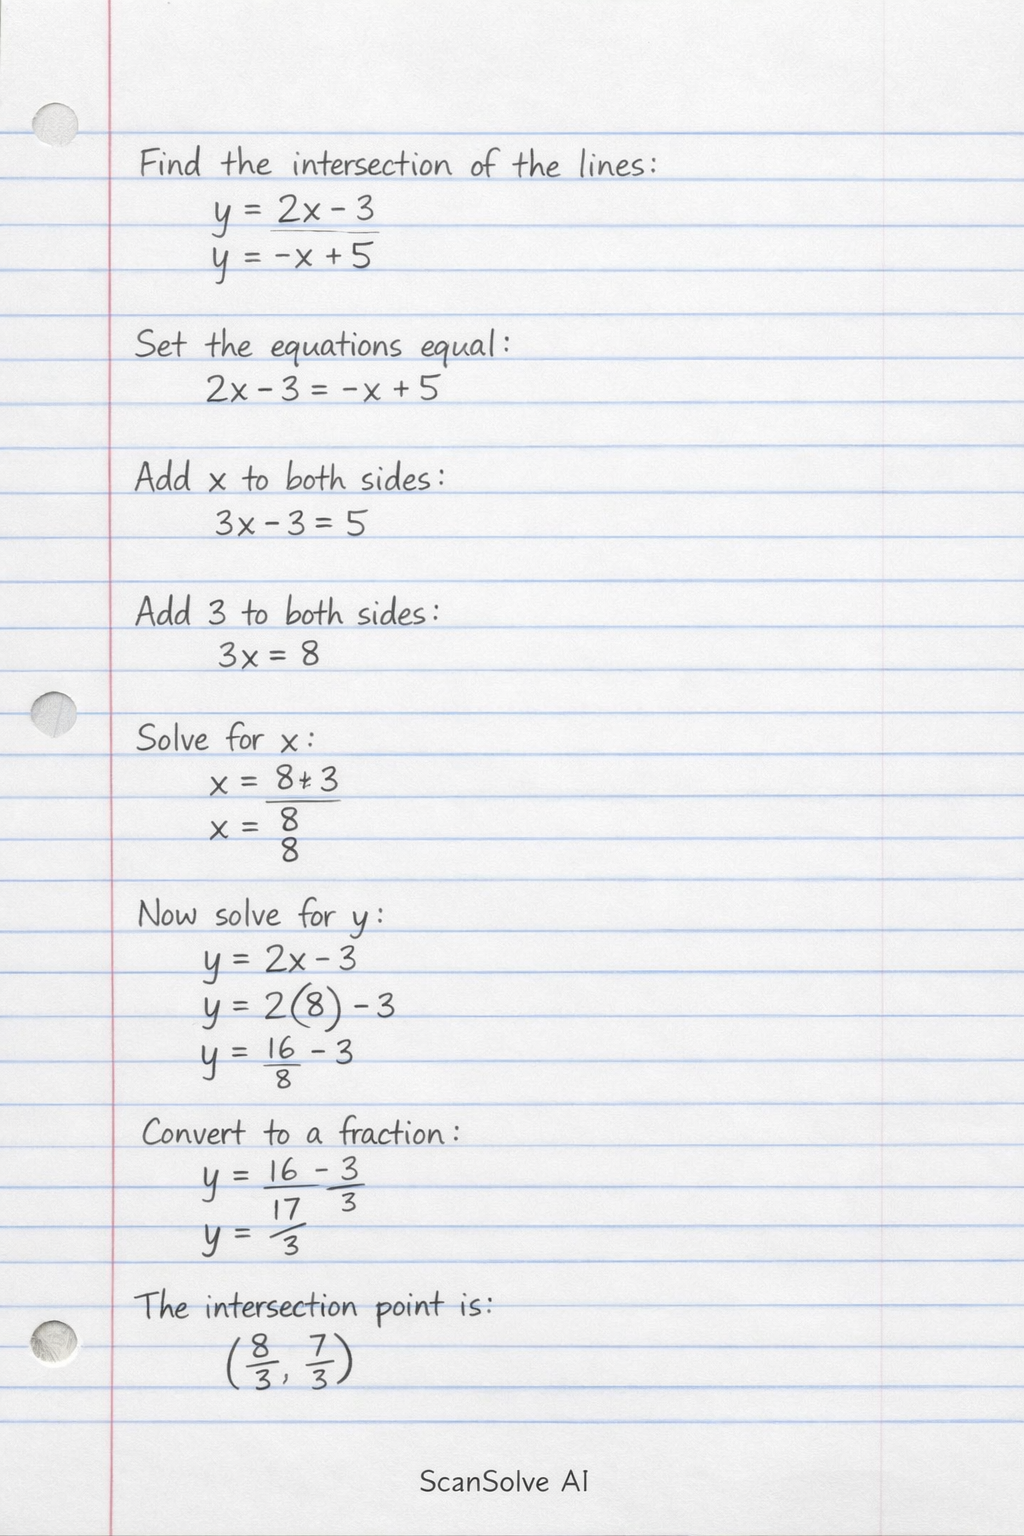 Find the intersection of the lines:
y = 2x - 3
y = -x + 5
Set the equations equal:
2x - 3 = -x + 5
Add x to both sides:
3x - 3 = 5
Add 3 to both sides:
3x = 8
Solve for x:
x = 8+3
x = 8
8
Now solve for y:
y = 2x - 3
y = 2(8) - 3
y = 16/8 - 3
Convert to a fraction:
y = 16 - 3/3
17
y = /3
The intersection point is:
(8/3, 7/3)
ScanSolve AI